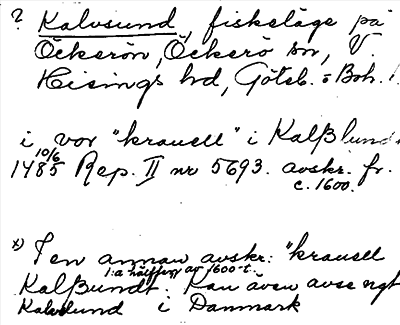 ? Kalvsund, fiskeläge på
Öckerön, Öckerö sn, V.
Hisings hd, Göteb. o Boh. l.
i vor "krauell" i Kalßlund
10/6
1485 Rep. II nr 5693. avskr. fr.
c. 1600.
x) I en annan avskr: "krauell
1:a hälften av 1600-t.
Kalßundt. Kan även avse ngt
Kalvsund i Danmark